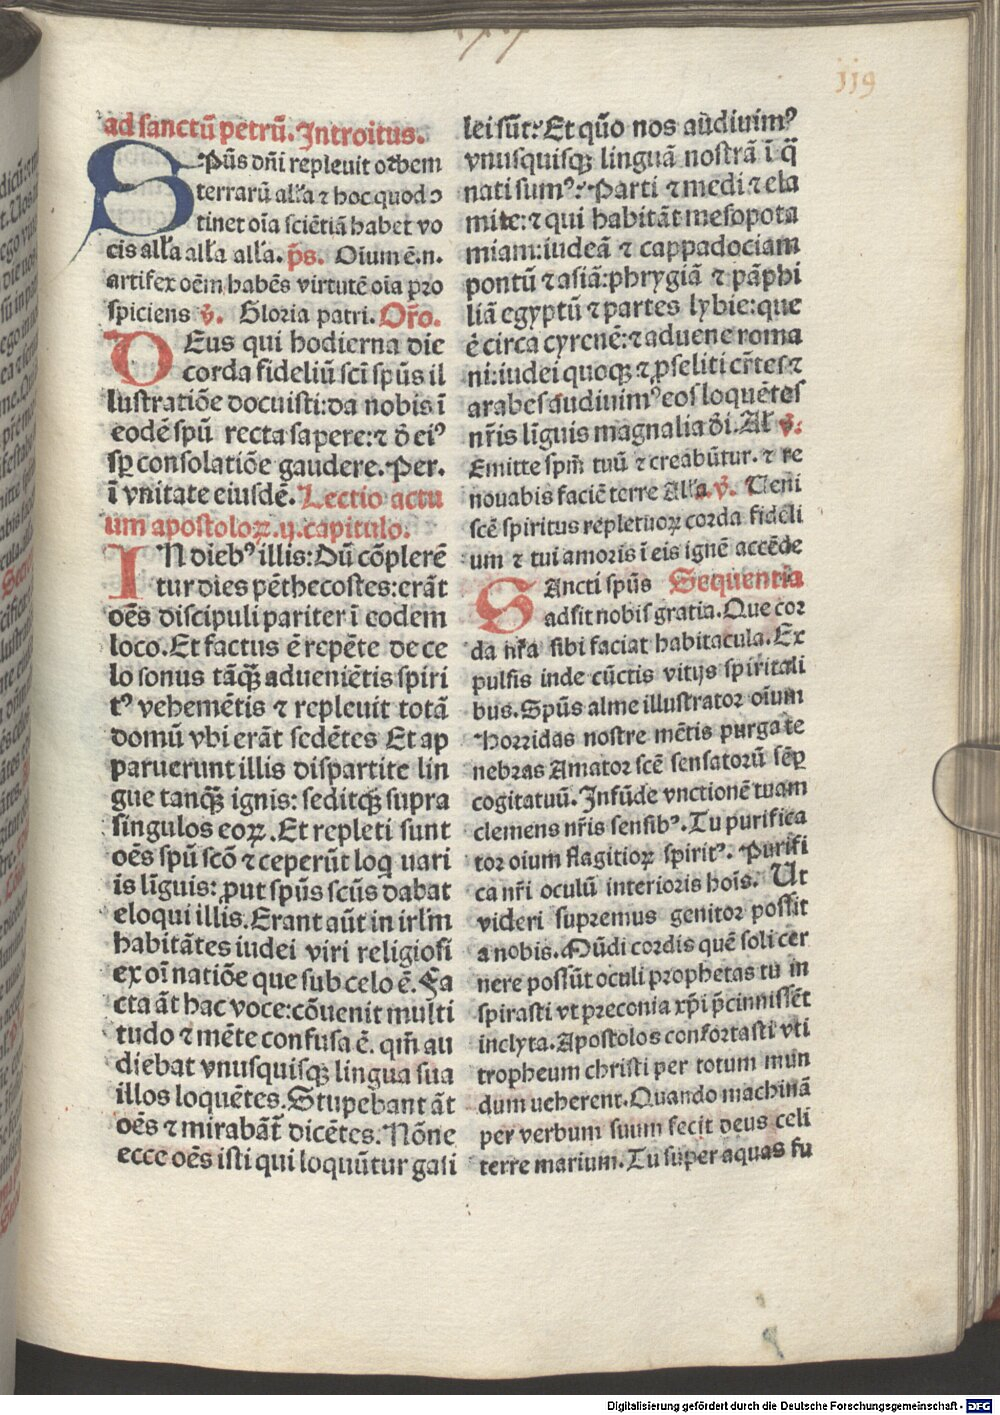 119
ad sanctū petrū. Introitus.
Spūs dn̄i repleuit orbem
terrarū all'a ⁊ hoc quod ↄ
tinet oīa sciētiā habet vo
cis all'a all'a all'a. p̄s. Oium ē.n.
artifex oēm habēs virtutē oīa pro
spiciens v̄. Gloria patri. Or̄o.
DEus qui hodierna die
corda fideliū sc̄i spūs il
lustratiōe docuisti: da nobis ī
eodē spū recta sapere: ⁊ d̄ eiꝰ
sꝑ consolatiōe gaudere. Per.
ī vnitate eiusdē. Lectio actu
um apostoloꝝ. ij. capitulo.
IN diebꝰ illis: Dū cōplerē
tur dies pēthecostes: erāt
oēs discipuli pariter ī eodem
loco. Et factus ē repēte de ce
lo sonus tāqꝫ̄ adueniētis spiri
tꝰ vehemētis ⁊ repleuit totā
domū vbi erāt sedētes Et ap
paruerunt illis dispartite lin
gue tanqꝫ̄ ignis: seditqꝫ supra
singulos eoꝝ. Et repleti sunt
oēs spū scō ⁊ ceperūt loq uari
is līguis: ꝓut spūs scūs dabat
eloqui illis. Erant aūt in irl'm
habitātes iudei viri religiosi
ex oī natiōe que sub celo ē. Fa
cta āt hac voce: cōuenit multi
tudo ⁊ mēte confusa ē. qm̄ au
diebat vnusquisqꝫ lingua sua
illos loquētes. Stupebant āt
oēs ⁊ mirabāt̄ dicētes. Nōne
ecce oēs isti qui loquūtur gali
lei sūt: Et quō nos audiuimꝰ
vnusquisqꝫ linguā nostrā ī q̄
nati sumꝰ: Parti ⁊ medi ⁊ ela
mite: ⁊ qui habitāt mesopota
miam: iudeā ⁊ cappadociam
pontū ⁊ asiā: phrygiā ⁊ pāphi
liā egyptū ⁊ partes lybie: que
ē circa cyrenē: ⁊ aduene roma
ni: iudei quoqꝫ ⁊ ꝓseliti cr̄tes ⁊
arabes audiuimꝰ eos loquētes
nr̄is līguis magnalia d̄i. Al'l' v̄.
Emitte spm̄ tuū ⁊ creabūtur. ⁊ re
nouabis faciē terre All'a. v̄. Veni
scē spiritus reple tuoꝝ corda fideli
um ⁊ tui amoris ī eis ignē accēde
SAncti spūs Sequentia
adsit nobis gratia. Que cor
da nr̄a sibi faciat habitacula. Ex
pulsis inde cūctis vitijs spiritali
bus. Spūs alme illustrator oīum
Horridas nostre mētis purga te
nebras Amator scē sensatorū sēꝑ
cogitatuū. Infūde vnctionē tuam
clemens nr̄is sensibꝰ. Tu purifica
tor oium flagitioꝝ spiritꝰ. Purifi
ca nr̄i oculū interioris hoīs. Ut
videri supremus genitor possit
a nobis. Mūdi cordis quē soli cer
nere possūt oculi prophetas tu in
spirasti vt preconia xp̄i p̄cinnissēt
inclyta. Apostolos confortasti vti
tropheum christi per totum mun
dum ueherent. Quando machinā
per verbum suum fecit deus celi
terre marium. Tu super aquas fu
Digitalisierung gefördert durch die Deutsche Forschungsgemeinschaft - DFG